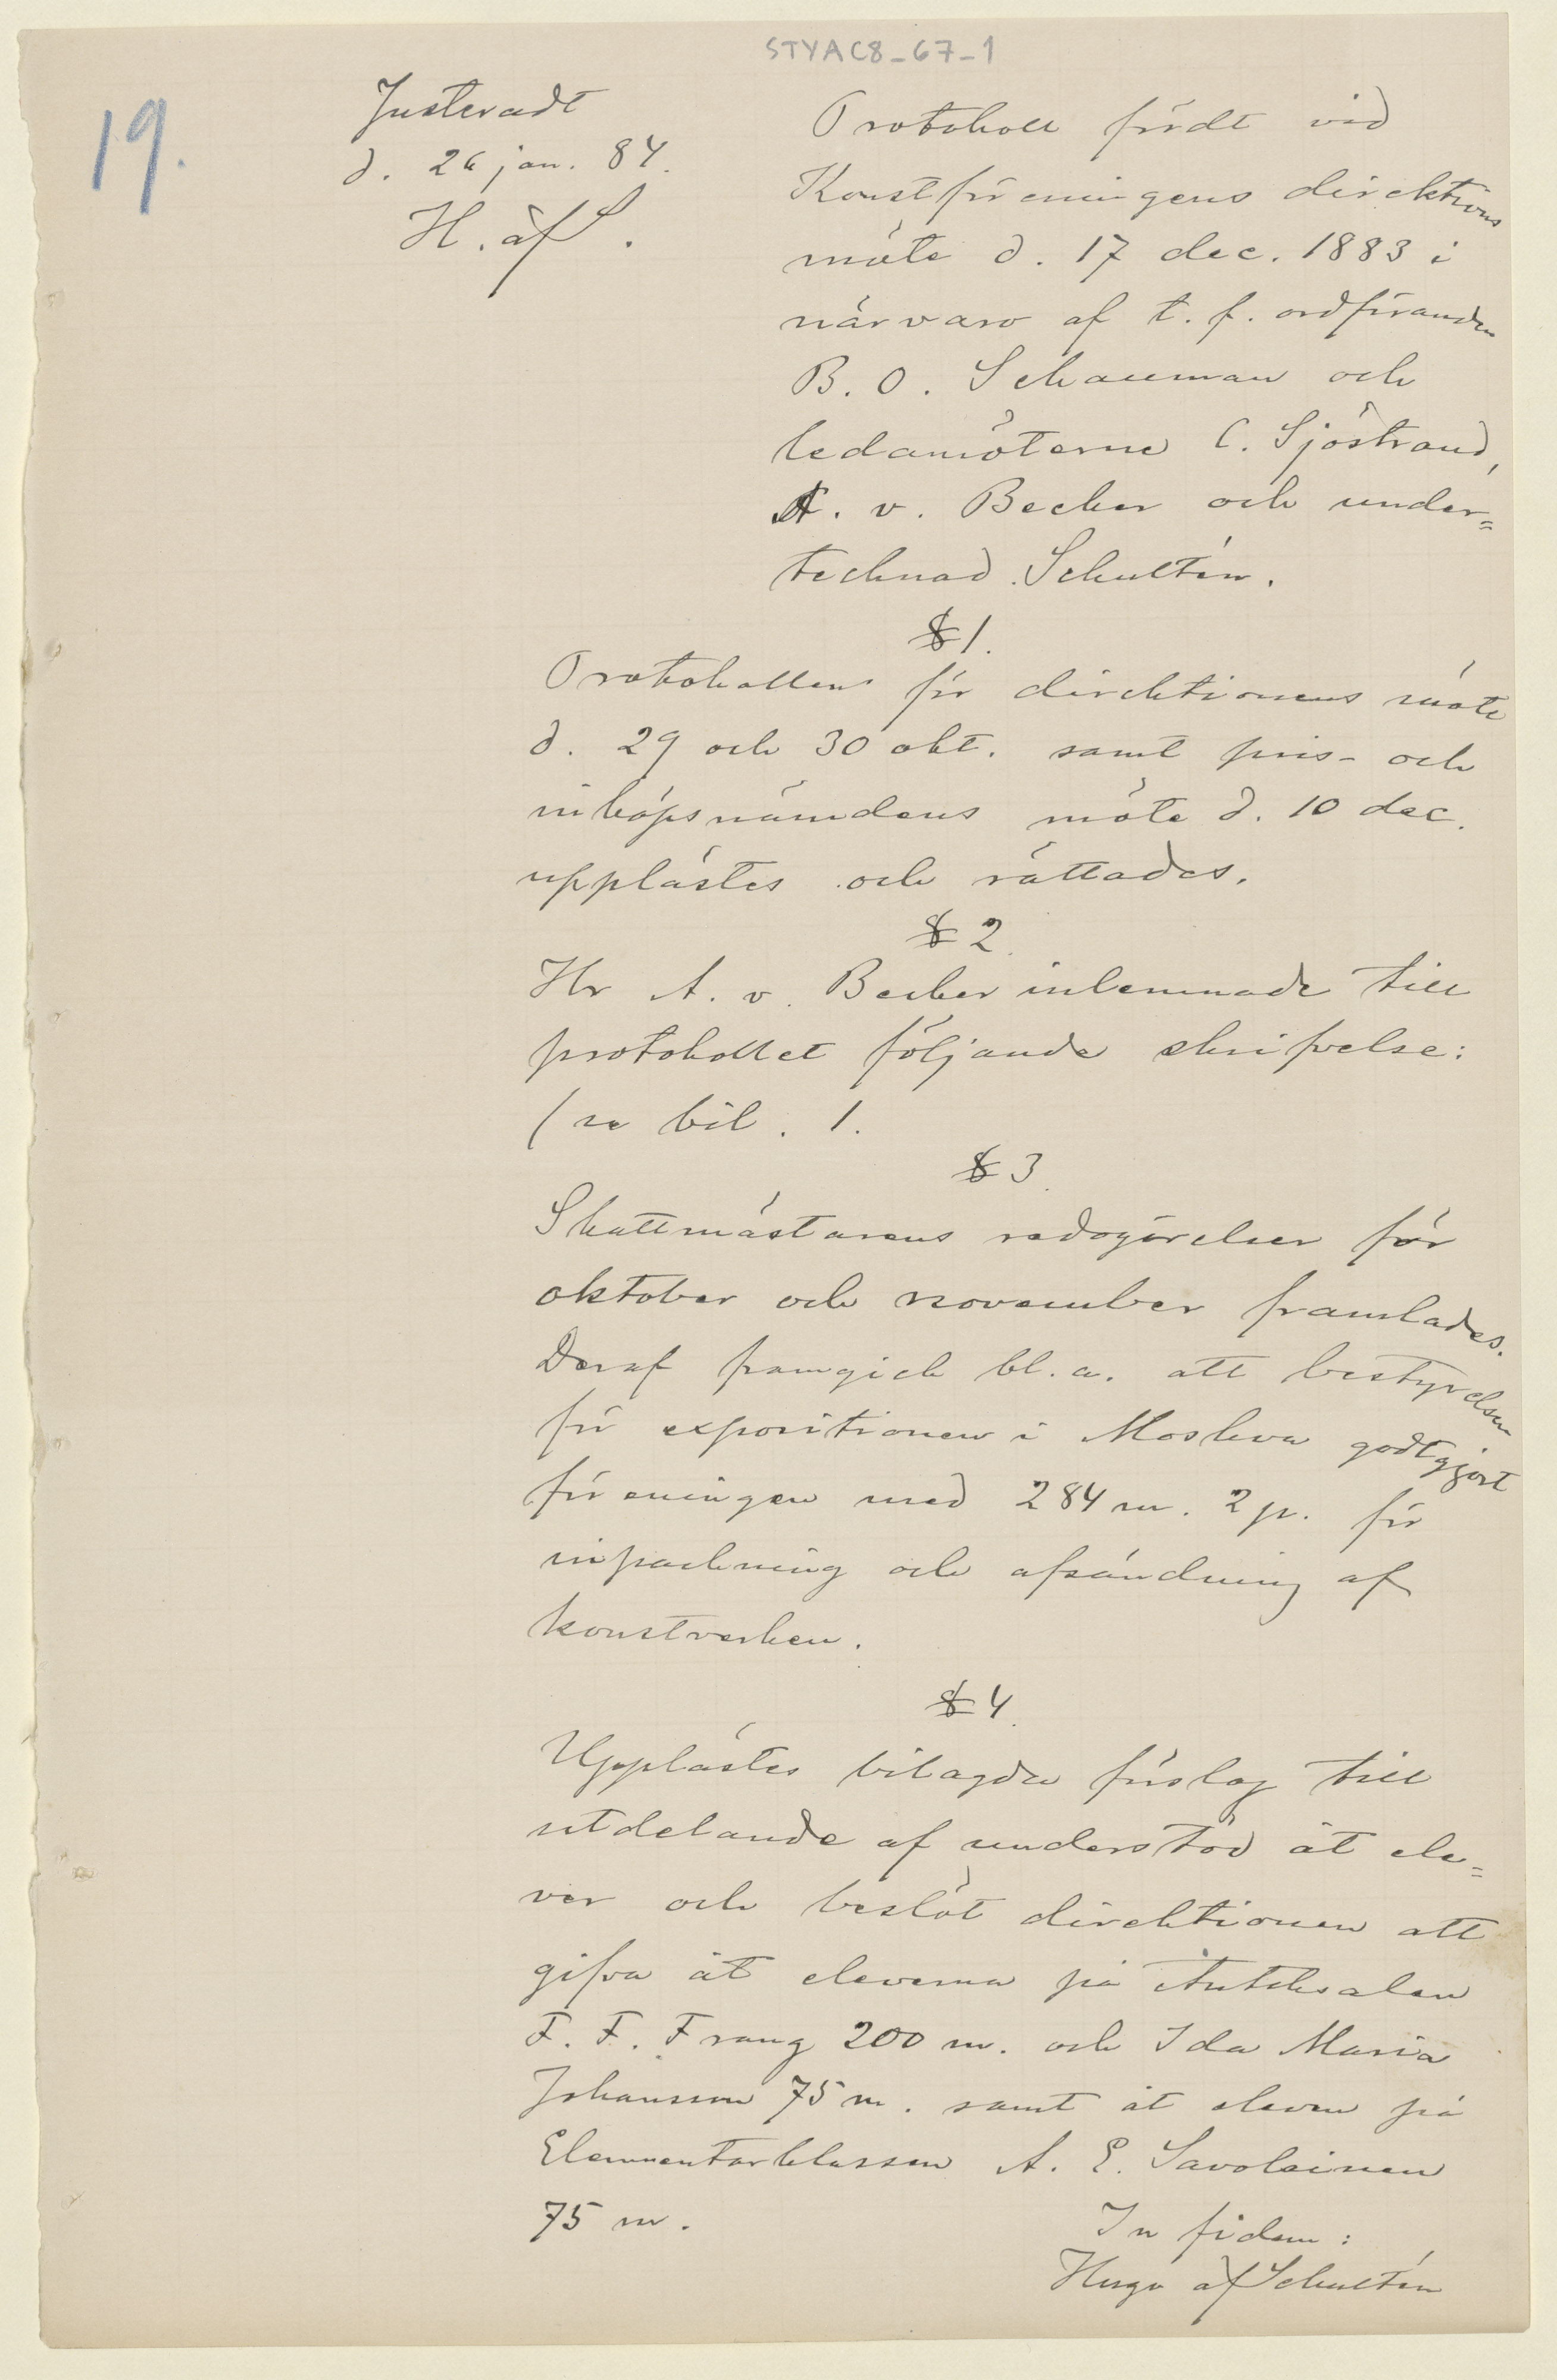 STYAC8-67-1
19.
Justeradt
d. 26 jan. 84.
H. af S.
Protokoll fördt vid
Konstföreningens direktions
möte d. 17 dec. 1883 i
närvaro af t. f. ordföranden
B. O. Schauman och
ledamöterne C. Sjöstrand,
A. v. Becker och under=
tecknad Schultén.
§ 1.
Protokollen för direktionens möte
d. 29 och 30 okt. samt pris- och
inköpsnämdens möte d. 10 dec.
upplästes och rättades.
§ 2.
Hr A. v. Becker inlemnade till
protokollet följande skrifvelse:
(se bil. 1.
§ 3.
Skattmästarens redogörelser för
oktober och november framlades.
Deraf framgick bl. a. att bestyrelsen
för expositionen i Moskva godtgjort
föreningen med 284 m. 2 p. för
inpackning och afsändning af
konstverken.
§ 4.
Upplästes bilagda förslag till
utdelande af understöd åt ele=
ver och beslöt direktionen att
gifva åt eleverna på Antiksalen
F. F. Frang 200 m. och Ida Maria
Johansson 75 m. samt åt eleven på
Elementarklassen A. E. Savolainen
75 m.
In fidem:
Hugo af Schultén